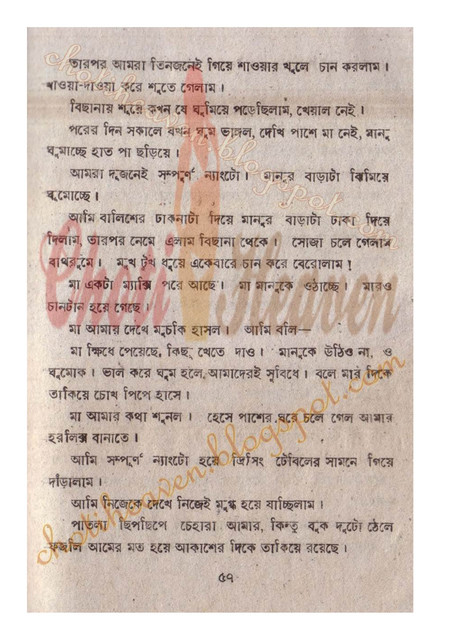 তারপর আমরা তিনজনেই গিয়ে শাওয়ার খুলে চান করলাম।
খাওয়া-দাওয়া করে শুতে গেলাম।
বিছানায় শুয়ে কখন যে ঘুমিয়ে পড়েছিলাম, খেয়াল নেই।
পরের দিন সকালে যখন ঘুম ভাঙ্গল, দেখি পাশে মা নেই, মানু
ঘুমাচ্ছে হাত পা ছড়িয়ে।
আমরা দুজনেই সম্পূর্ণ ন্যাংটো। মানুর বাড়াটা ঝিমিয়ে
ঘুমোচ্ছে।
আমি বালিশের ঢাকনাটা দিয়ে মানুর বাড়াটা ঢাকা দিয়ে
দিলাম, তারপর নেমে এলাম বিছানা থেকে। সোজা চলে গেলাম
বাথরুমে। মুখ টুখ ধুয়ে একেবারে চান করে বেরোলাম!
মা একটা ম্যাক্সি পরে আছে। মা মানুকে ওঠাচ্ছে। মারও
চানটান হয়ে গেছে।
মা আমায় দেখে মুচকি হাসল। আমি বলি—
মা ক্ষিধে পেয়েছে, কিছু খেতে দাও। মানুকে উঠিও না, ও
ঘুমোক। ভাল করে ঘুম হলে, আমাদেরই সুবিধে। বলে মার দিকে
তাকিয়ে চোখ পিপে হাসে।
মা আমার কথা শুনল। হেসে পাশের ঘরে চলে গেল আমার
হরলিক্স বানাতে।
আমি সম্পূর্ণ ন্যাংটো হয়ে ড্রেসিং টেবিলের সামনে গিয়ে
দাঁড়ালাম।
আমি নিজেকে দেখে নিজেই মুগ্ধ হয়ে যাচ্ছিলাম।
পাতলা ছিপছিপে চেহারা আমার, কিন্তু বুক দুটো ঠেলে
ফজলি আমের মত হয়ে আকাশের দিকে তাকিয়ে রয়েছে।
৫৭
Choti Heaven
chotiheaven.blogspot.com
chotiheaven.blogspot.com